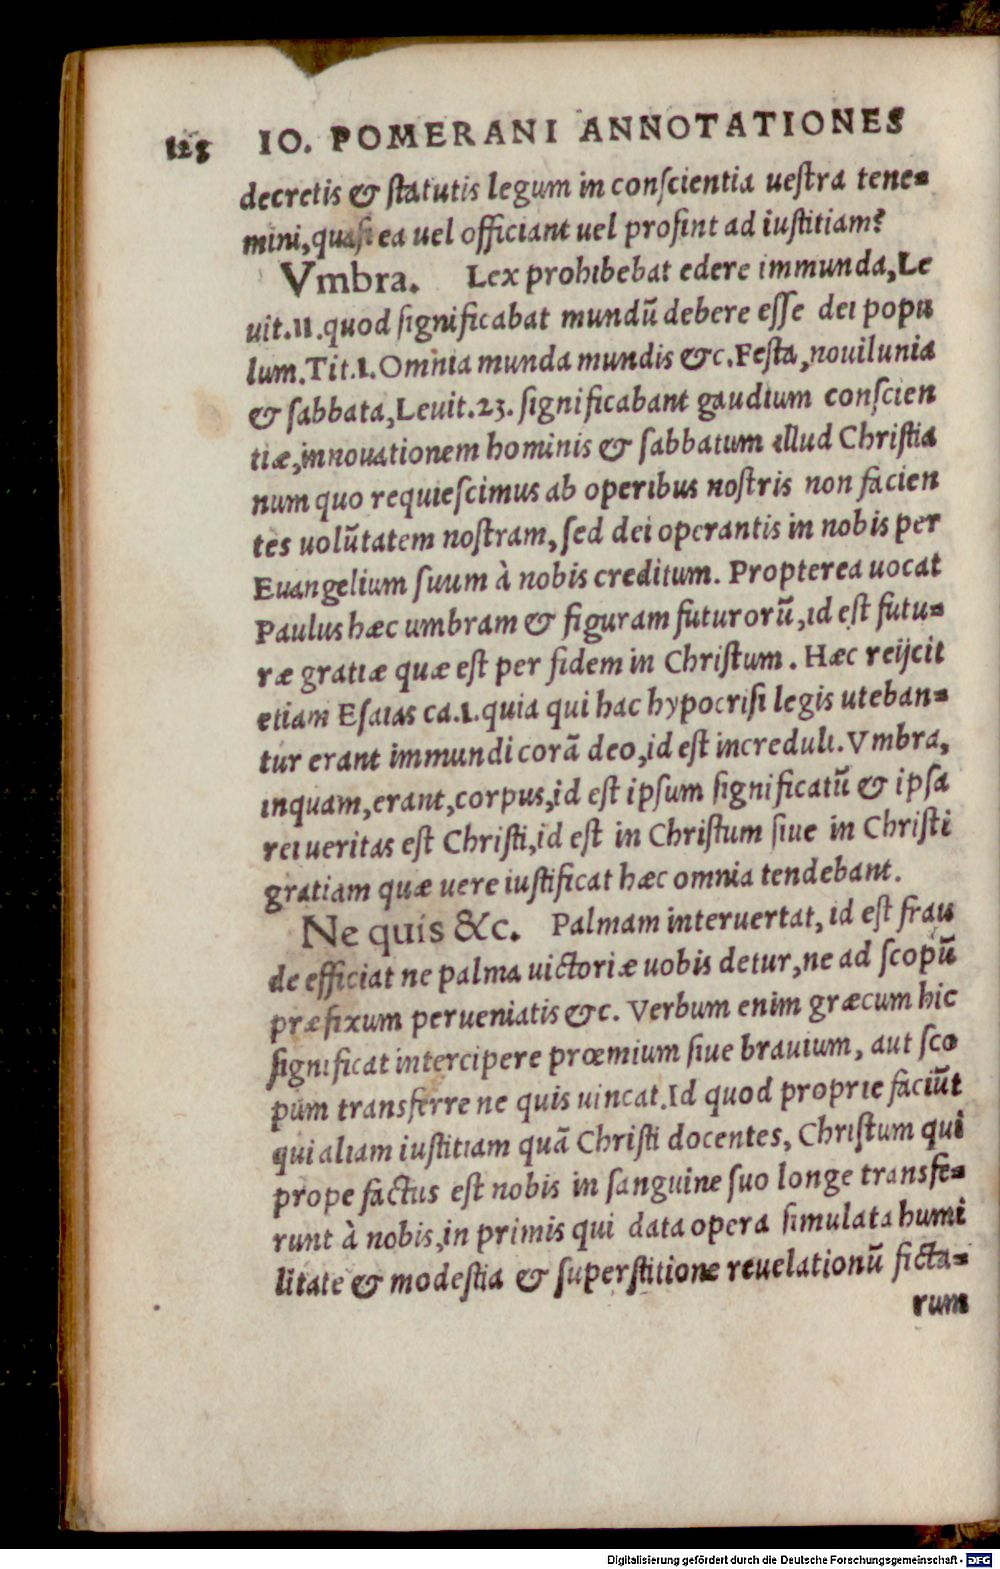 128 IO. POMERANI ANNOTATIONES
decretis & statutis legum in conscientia uestra tene-
mini, quasi ea uel officiant uel prosint ad iustitiam?
Vmbra. Lex prohibebat edere immunda, Le
uit.11. quod significabat mundũ debere esse dei popu
lum. Tit.1. Omnia munda mundis &c. Festa, nouilunia
& sabbata, Leuit.23. significabant gaudium conscien
tiæ, innouationem hominis & sabbatum illud Christia
num quo requiescimus ab operibus nostris non facien
tes uolũtatem nostram, sed dei operantis in nobis per
Euangelium suum à nobis creditum. Propterea uocat
Paulus hæc umbram & figuram futurorũ, id est futu-
ræ gratiæ quæ est per fidem in Christum. Hæc reijcit
etiam Esaias ca.1. quia qui hac hypocrisi legis uteban-
tur erant immundi corã deo, id est increduli. Vmbra,
inquam, erant, corpus, id est ipsum significatũ & ipsa
rei ueritas est Christi, id est in Christum siue in Christi
gratiam quæ uere iustificat hæc omnia tendebant.
Ne quis &c. Palmam interuertat, id est frau
de efficiat ne palma uictoriæ uobis detur, ne ad scopũ
præfixum perueniatis &c. Verbum enim græcum hic
significat intercipere prœmium siue brauium, aut sco
pum transferre ne quis uincat. Id quod proprie faciũt
qui aliam iustitiam quã Christi docentes, Christum qui
prope factus est nobis in sanguine suo longe transfe-
runt à nobis, in primis qui data opera simulata humi
litate & modestia & superstitione reuelationũ ficta-
rum
Digitalisierung gefördert durch die Deutsche Forschungsgemeinschaft - DFG